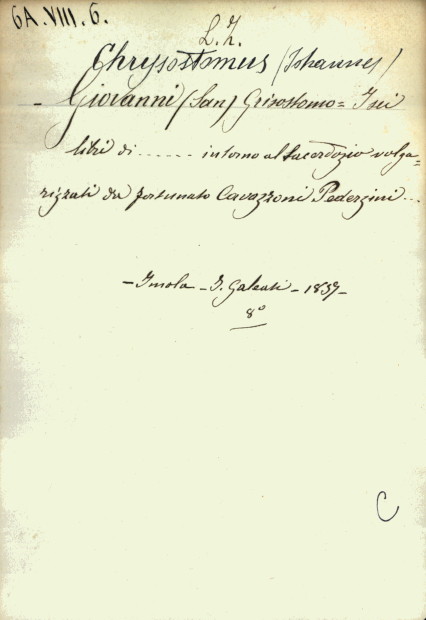 6A.VIII.6.
L. I.
Chrysostomus (Johannes)
- Giovanni (San) Grisostomo = I sei
libri di ...... intorno al Sacerdozio volga=
rizzati da Fortunato Cavazzoni Pederzini ...
- Imola - I. Galeati - 1857 -
8°
C